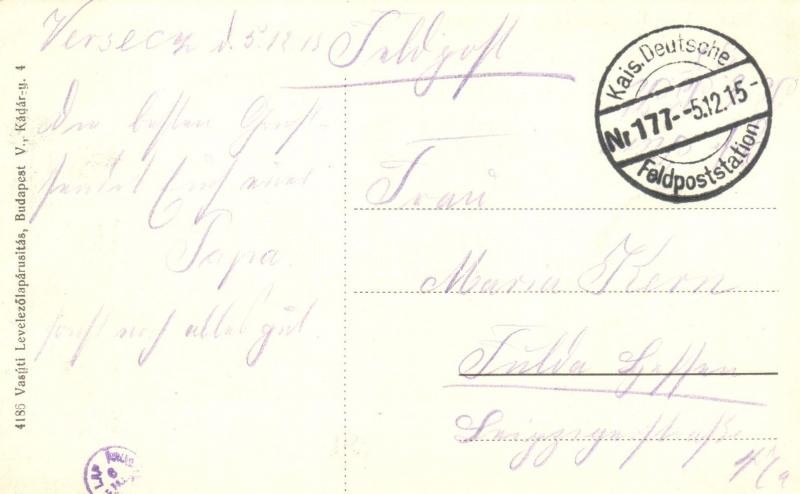 Versecz d. 5.12.15
Die besten Grüße
sendet Euch euer
Papa.
sonst noch alles gut.
Feldpost
Frau
Maria Kern
Fulda Hessen
Leipzigerstraße
47a
Kais. Deutsche
Nr 177 - -5.12.15-
Feldpoststation
4186 Vasúti Levelezőlapárusitás, Budapest V., Kádár-u. 4